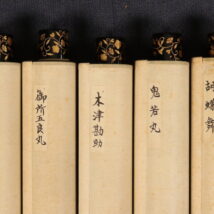 胡蝶舞
鬼若丸
木津勘助
御所五良丸